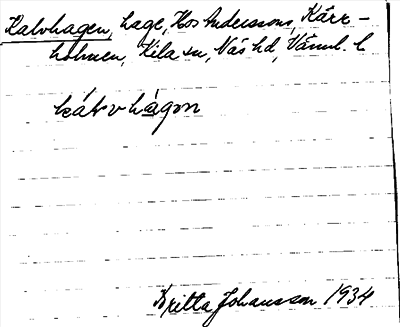 Kalvhagen, hage, Hos Anderssons, Kärr-
holmen, Kila sn, Näs hd, Värml. l.
kálvhágen
Britta Johansson 1934